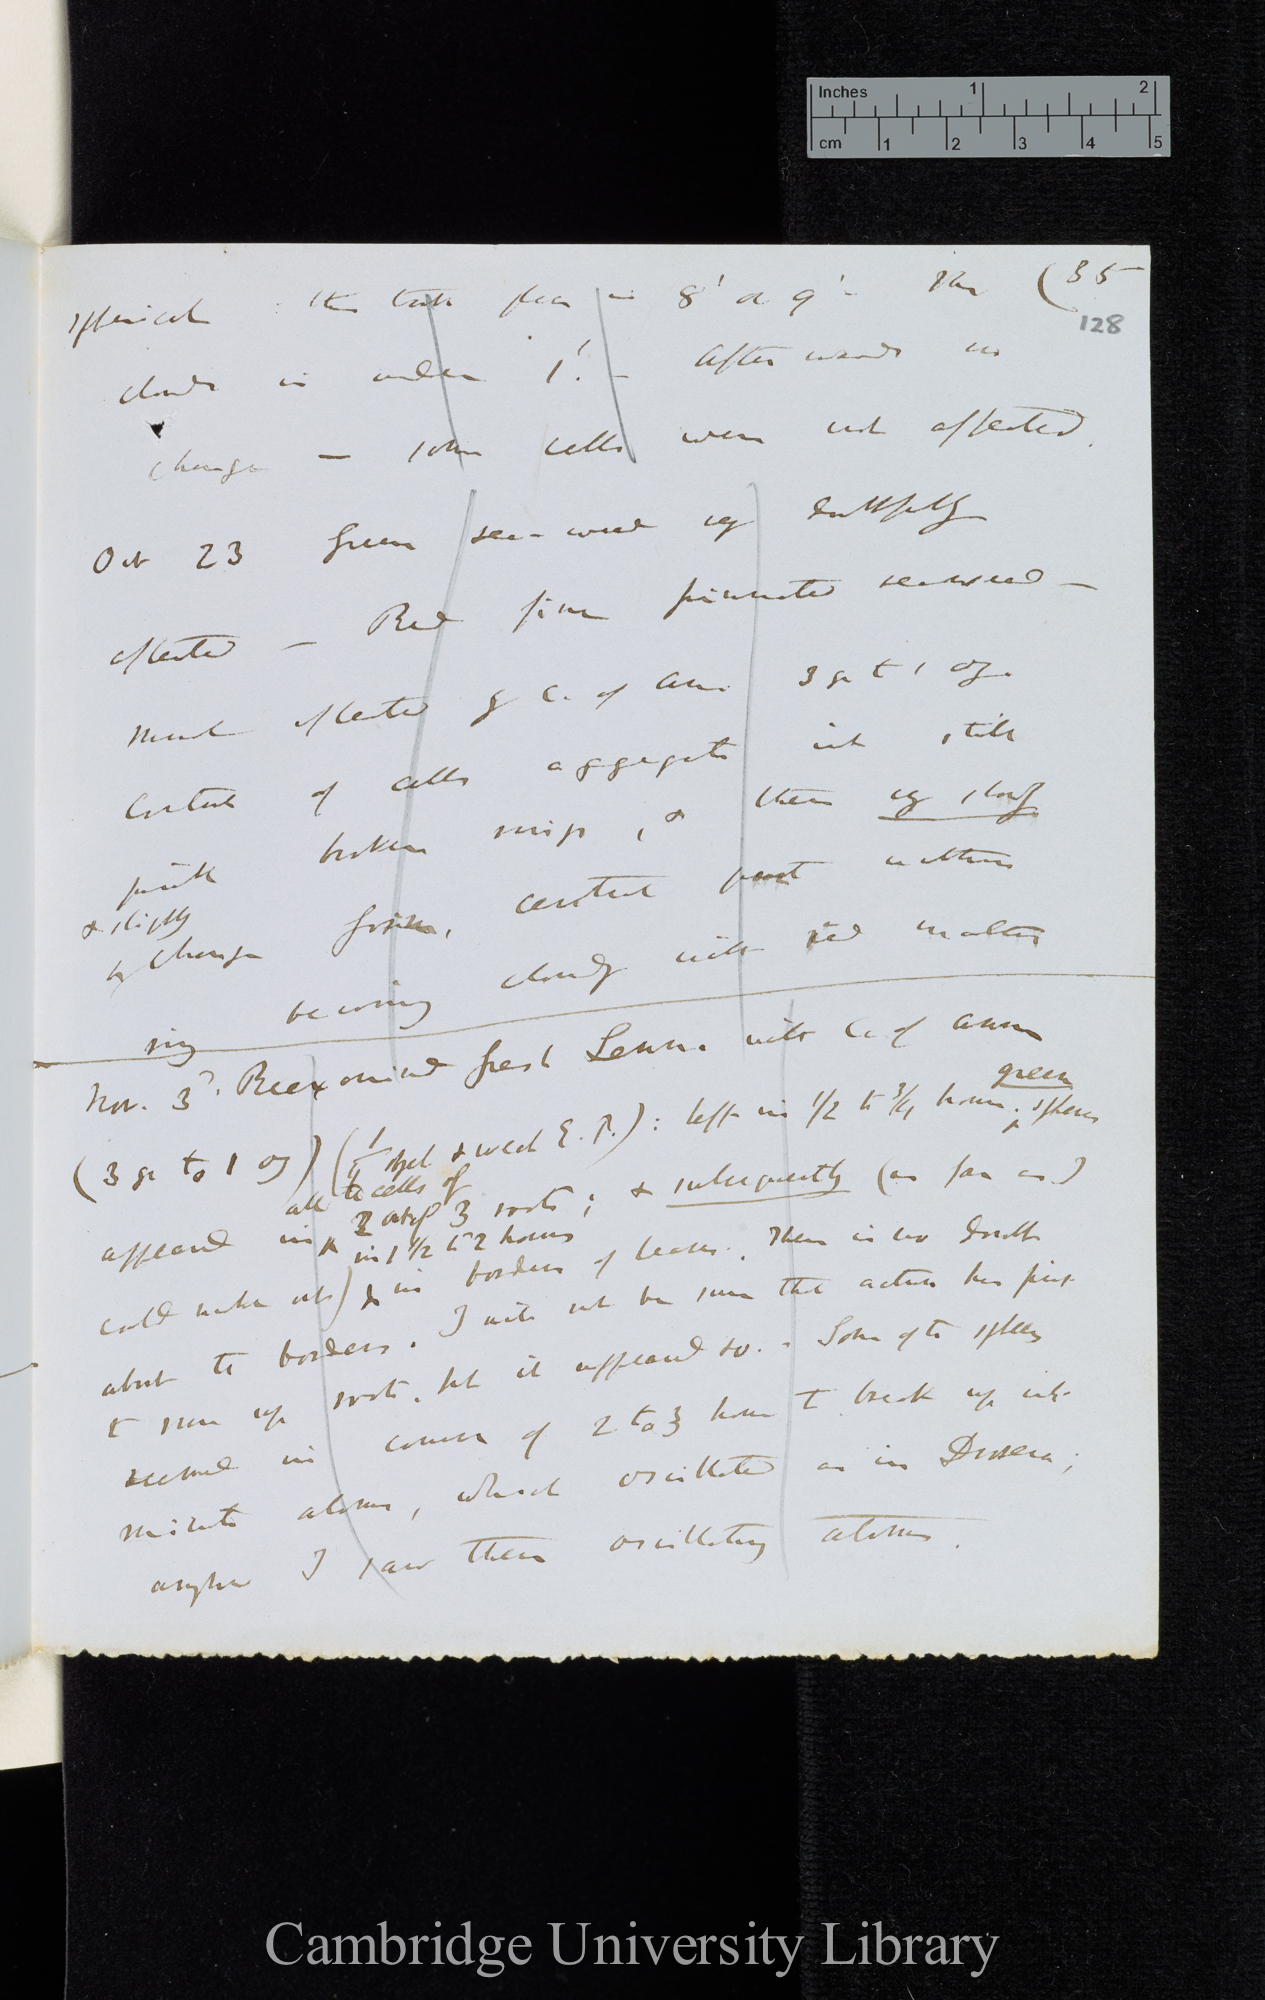 Inches 1 2
cm 1 2 3 4 5
(35
128
spherical : this took place in 8' or 9' – The
clouds in under 1'. – Afterwards no
change — some cells were not affected.
Oct 23 Green sea-weed very doubtfully
affected — Red fine pinnated seaweed —
much affected by C. of Am. 3 gr to 1 oz.
Contents of cells aggregate into still
pink broken rings, & then very slowly
& slightly
change form, central part within
ring becoming cloudy with red matter
Nov. 3d. Reexamined fresh Lemna with C. of Amm
(3 gr to 1 oz) (1/4 object & weak E. P.): left in 1/2 to 3/4 hour. green spheres
all the cells of
appeared in 2 out of 3 roots; & subsequently (as far as I
in 1 1/2 to 2 hours
could make out) & in borders of leaves. There is no doubt
about the borders. I will not be sure that action has first
to run up roots, but it appeared so. – Some of the spheres
seemed in course of 2 to 3 hours to break up into
minute atoms, which oscillated as in Drosera;
anyhow I saw these oscillating atoms.
Cambridge University Library